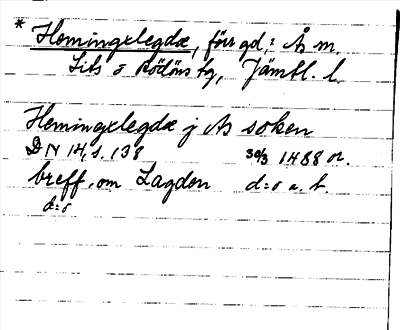 * Hemingxlegdæ, förr gd.: Ås sn.
Lits o Rödöns tg, Jämtl. l.
Hemingxlegdæ j As soken
DN 14, s. 138 30/3 1488 or.
breff, om Lagden d:o a. h.
d:o